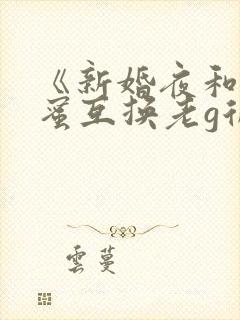 《新婚夜和
蜜互换老g
雲蔓